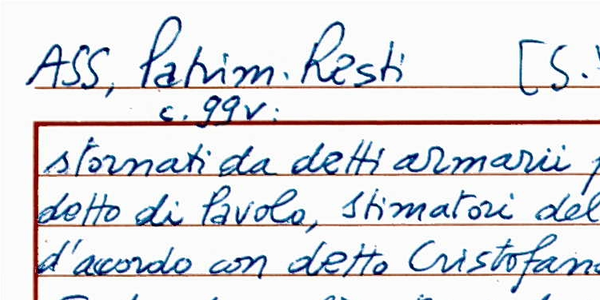 ASS, Patrim. Resti [S.
c. 99v:
stornati da detti armarii p
detto di Pavolo, stimatori del
d'acordo con detto Cristofan